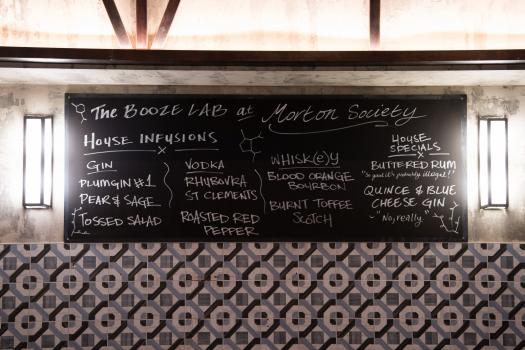 The BOOZE LAB at Morton Society
HOUSE INFUSIONS
GIN
PLUMGIN #1
PEAR & SAGE
TOSSED SALAD
VODKA
RHUBOVKA
ST CLEMENTS
ROASTED RED
PEPPER
WHISK(e)Y
BLOOD ORANGE
BOURBON
BURNT TOFFEE
SCOTCH
HOUSE
SPECIALS
BUTTERED RUM
"So good it's probably illegal!!"
QUINCE & BLUE
CHEESE GIN
~ "No, really."